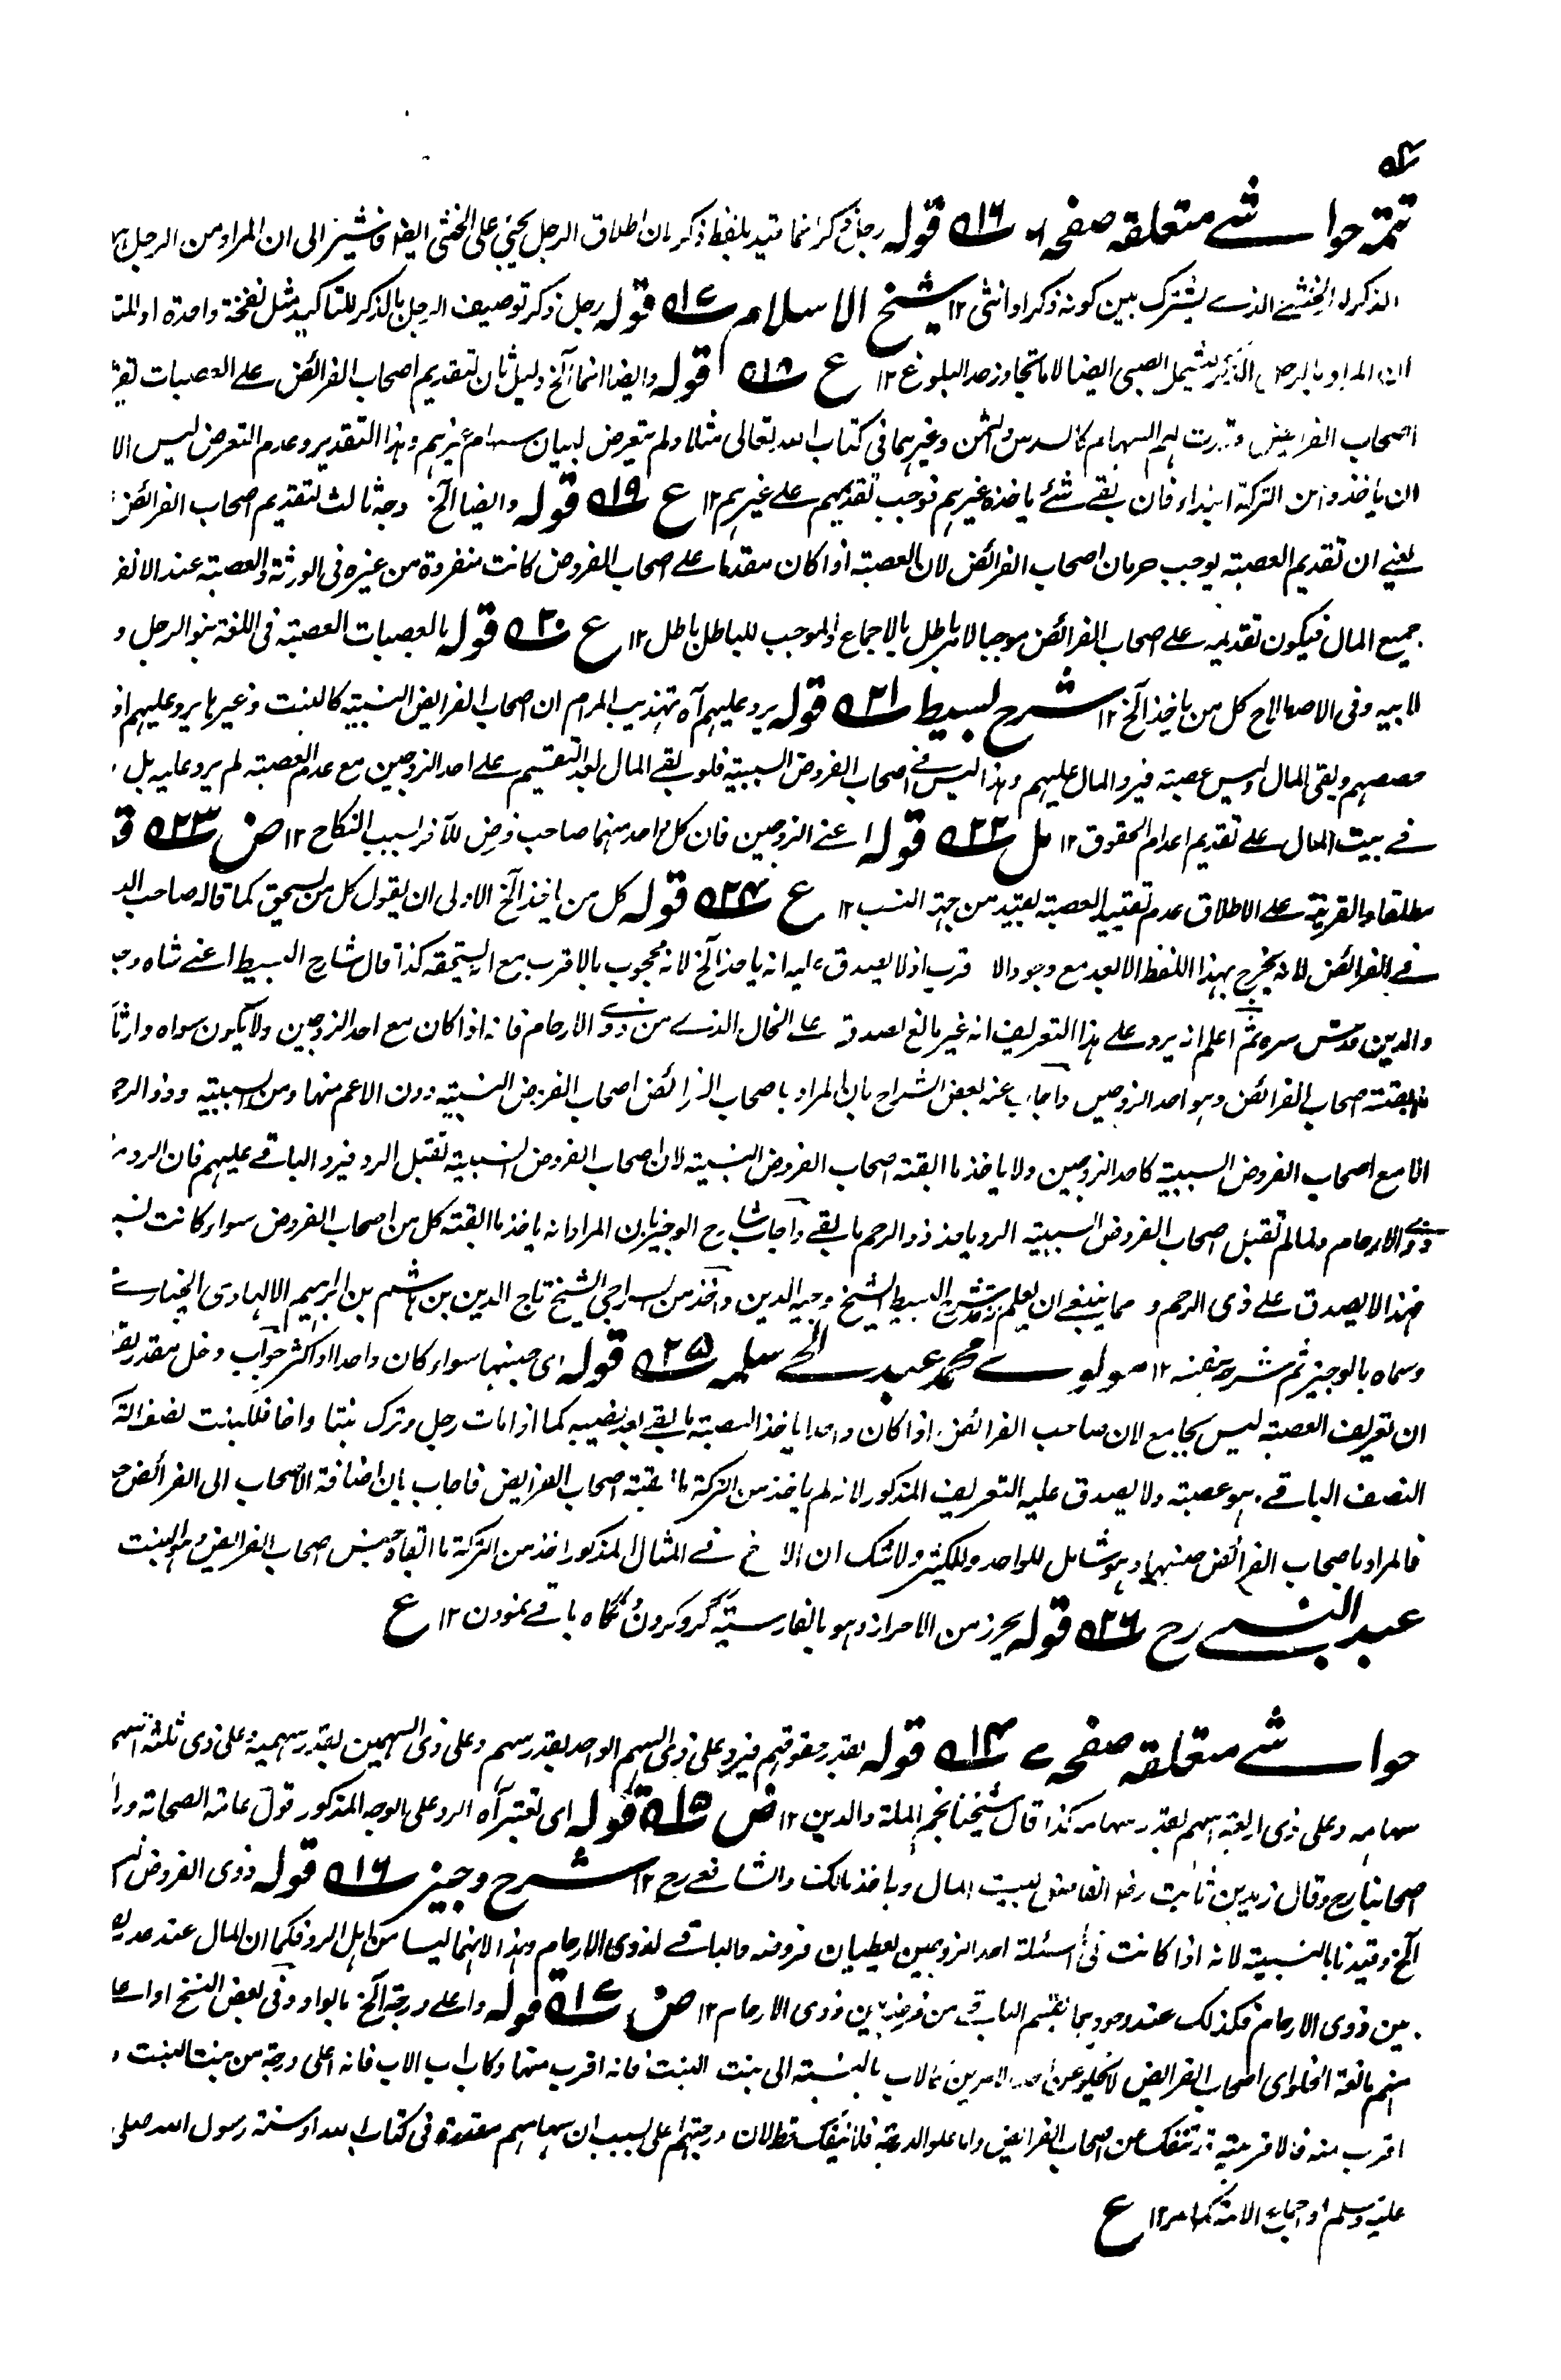 ۵۴
تتمه حواشے متعلقه صفحه ۶ ۱۶ قوله رجل ذكر انما قيد بلفظ ذكر بان اطلاق الرجل يجئ على الخنثى ايضا فاشير الى ان المراد من الرجل
الذكر لا الخنثے الذے يشترك بين كونه ذكرا او انثى ۱۲ شيخ الاسلام ۱۷ قوله رجل ذكر توصيف الرجل بالذكر للتاكيد مثل نفخة واحدة او
ان المراد بالرجل الذكر يشمل الصبى ايضا لا ما يتجاوز حد البلوغ ۱۲ ع ۱۸ قوله وايضا انما آلخ دليل ثان لتقديم اصحاب الفرائض على العصبات
اصحاب الفرايض وقدرت لهم السهام كالسدس والثمن وغيرهما فى كتاب الله تعالى مثلا ولم يتعرض لبيان سهام غيرهم وهذا التقدير وعدم التعرض ليس الا
ان ياخذوا من التركة ابتداء فان بقے شئ ياخذه غيرهم فوجب تقديمهم على غيرهم ۱۲ ع ۱۹ قوله وايضا آلخ وجه ثالث لتقديم اصحاب الفرائض
يعنے ان تقديم العصبة يوجب حرمان اصحاب الفرائض لان العصبة اذا كان مقدما على اصحاب الفروض كانت منفردة من غيره فى الورثة والعصبة عند
جميع المال فيكون تقديمه على اصحاب الفرائض موجبا لامر باطل بالاجماع والموجب للباطل باطل ۱۲ ع ۲۰ قوله بالعصبات العصبة فى اللغة بنو الرجل و
لابيه وفى الاصطلاح كل من ياخذ آلخ ۱۲ شرح بسيط ۲۱ قوله يرد عليهم آه تهذيب المرام ان اصحاب الفرايض النسبية كالبنت وغيرها يرد عليهم
حصصهم وبقى المال وليس عصبة فيرد المال عليهم وهذا ليس فے اصحاب الفروض السببية فلو بقے المال بعد التقسيم على احد الزوجين مع عدم العصبة لم يرد عليه بل
فے بيت المال على تقديم اعدام الحقوق ۱۲ مل ۲۲ قوله اعنے الزوجين فان كل واحد منهما صاحب فرض للآخر بسبب النكاح ۱۲ ض ۲۳
مطلقا والقرينة على الاطلاق عدم تقييد العصبة بقيد من جهة النسب ۱۲ ع ۲۴ قوله كل من ياخذ آلخ الاولى ان يقول كل من يستحق كما قاله صاحب
فے الفرائض لانه يخرج بهذا اللفظ الابعد مع وجود الاقرب اذ لا يصدق عليه انه ياخذ آلخ لانه محجوب بالاقرب مع انه يستحقه كذا قال شارح البسيط اعنے شاه
والدين قدس سره ثم اعلم انه يرد على هذا التعريف انه غير مانع لصدقه على الخال الذے من ذوے الارحام فانه اذا كان مع احد الزوجين ولا يكون سواه وارثا
ما ابقته اصحاب الفرائض وهو احد الزوجين واجاب عنه بعض الشراح بان المراد باصحاب الفرائض اصحاب الفروض النسبية دون الاعم منها ومن السببية وذو الرحم
انما مع اصحاب الفروض السببية كاحد الزوجين ولا ياخذ ما ابقته اصحاب الفروض النسبية لان اصحاب الفروض النسبية تقبل الرد فيرد الباقے عليهم فان الرد
ذوے الارحام ولما لم تقبل اصحاب الفروض السببية الرد ياخذ ذو الرحم ما بقے واجاب شارح الوجيز بان المراد انه ياخذ ما ابقته كل من اصحاب الفروض سواء كانت
فهذا لا يصدق على ذى الرحم ومما ينبغے ان يعلم شرح البسيط الشيخ وجيه الدين واخذ من السراجى الشيخ تاج الدين بن هاشم بن ابراهيم
وسماه بالوجيز ثم شرحه بنفسه ۱۲ مولوے محمد عبد الحے سلمه ۲۵ قوله اى جنسها سواء كان واحدا او اكثر جواب دخل مقدر
ان تعريف العصبة ليس بجامع لان صاحب الفرائض اذا كان واحدا ياخذ العصبة ما بقے بعد نصيبه كما اذا مات رجل وترك بنتا واخا فللبنت نصف
النصف الباقے وهو عصبة ولا يصدق عليه التعريف المذكور لانه لم ياخذ من التركة ما ابقته اصحاب الفرايض فاجاب بان اضافة الاصحاب الى الفرائض
فالمراد باصحاب الفرائض جنسها وهو شامل للواحد وللكثير ولا شك ان الاخ فے المثال المذكور اخذ من التركة ما ابقاه جنس اصحاب الفرائض وهو البنت
عبد النبے رح ۲۶ قوله يحرز من الاحراز وهو بالفارسية گرد كردن ونگاه باقے نمودن ۱۲ ع
حواشے متعلقه صفحه ۷ ۱۴ قوله بقدر حقوقهم فيرد على ذى السهم الواحد بقدر سهم وعلى ذى السهمين بقدر سهميه وعلى ذى ثلثة اسهم
سهامه وعلى ذى اربعة اسهم بقدر سهامه كذا قال شيخنا نجم الملة والدين ۱۲ ض ۱۵ قوله اى تعتبر آه الرد على الوجه المذكور قول عامة الصحابة
اصحابنا رح وقال زيد بن ثابت رض الفاضل لبيت المال وبه اخذ مالك والشافعے رح ۱۲ شرح وجيز ۱۶ قوله ذوى الفروض
آلخ وقيدنا بالنسبية لانه اذا كانت فى المسئلة احد الزوجين يعطيان فروضه والباقے لذوى الارحام وهذا لانهما ليسا من اهل الرد فكما ان المال عند عدم
بين ذوى الارحام فكذلك عند وجودهما يقسم الباقى من فرضه بين ذوى الارحام ۱۲ ض ۱۷ قوله واعلے درجة آلخ بالواو وفى بعض النسخ او
منهم مانعة الخلو اى اصحاب الفرايض لا يخلو عن احد الامرين فالاب بالنسبة الى بنت البنت فانه اقرب منها وكاب اب الاب فانه اعلى درجة من بنت البنت
اقرب منه فالاقربية تنفك عن اصحاب الفرايض واما علو الدرجة فلا ينفك قط لان درجتهم اعلى بسبب ان سهامهم مقدرة فى كتاب الله او سنة رسول الله صلى
عليه وسلم او اجماع الامة كما مر ۱۲ ع